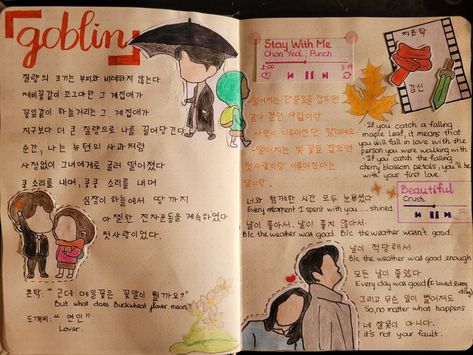 goblin
질량의 크기는 부피와 비례하지 않는다
제비꽃같이 조그마한 그 계집애가
꽃잎같이 하늘거리는 그 계집애가
지구보다 더 큰 질량으로 나를 끌어당긴다.
순간, 나는 뉴턴의 사과처럼
사정없이 그녀에게로 굴러 떨어졌다
쿵 소리를 내며, 쿵쿵 소리를 내며
심장이 하늘에서 땅 까지
아찔한 진자운동을 계속하였다
첫사랑이었다.
은탁: " 근데 메밀꽃은 꽃말이 뭘까요?"
But what does Buckwheat flower mean?
도깨비: " 연인"
Lover.
Stay With Me
Chan Yeol, Punch
지은탁
김신
떨어지는 단풍잎을 잡으면
같이 걷던 사람이랑
사랑이 이루어진단 말이에요.
떨어지는 벚꽃잎을 잡으면
첫사랑이 이루어진다는
말이랑.
· If you catch a falling
maple leaf, it means that
you will fall in love with the
person you were walking with
- If you catch the falling
cherry blossom petals, you'll be
with your first love.
Beautiful
Crush
너와 함께한 시간 모두 눈부셨다
Every moment I spent with you ... shined
날이 좋아서.. 날이 좋지 않아서..
B/c the weather was good. B/c the weather wasn't good.
날이 적당해서
B/c the weather was good enough
모든 날이 좋았다
Every day was good (I loved every day)
그리고 무슨 일이 벌어져도
So, no matter what happens
네 잘못이 아니다.
it's not your fault.